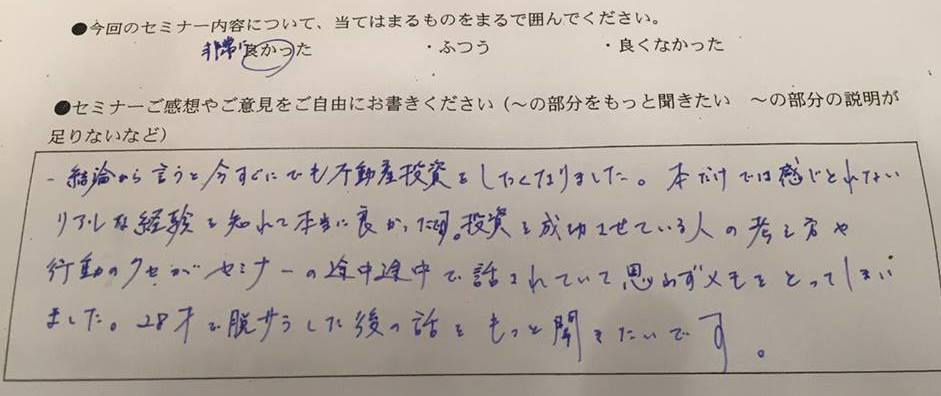 ●今回のセミナー内容について、当てはまるものをまるで囲んでください。
非常に良かった ・ふつう ・良くなかった
●セミナーご感想やご意見をご自由にお書きください(~の部分をもっと聞きたい ~の部分の説明が
足りないなど)
- 結論から言うと今すぐにでも不動産投資をしたくなりました。本だけでは感じとれない
リアルな経験を知れて本当に良かったです。投資を成功させている人の考え方や
行動のクセがセミナーの途中途中で話されていて思わずメモをとってしまい
ました。28才で脱サラした後の話をもっと聞きたいです。